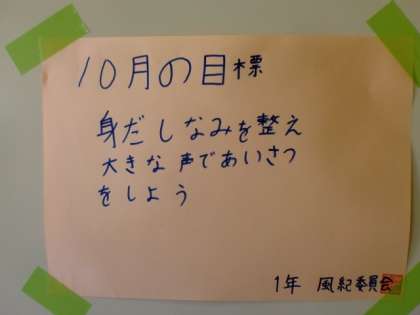 10月の目標
身だしなみを整え
大きな声であいさつ
をしよう
1年 風紀委員会